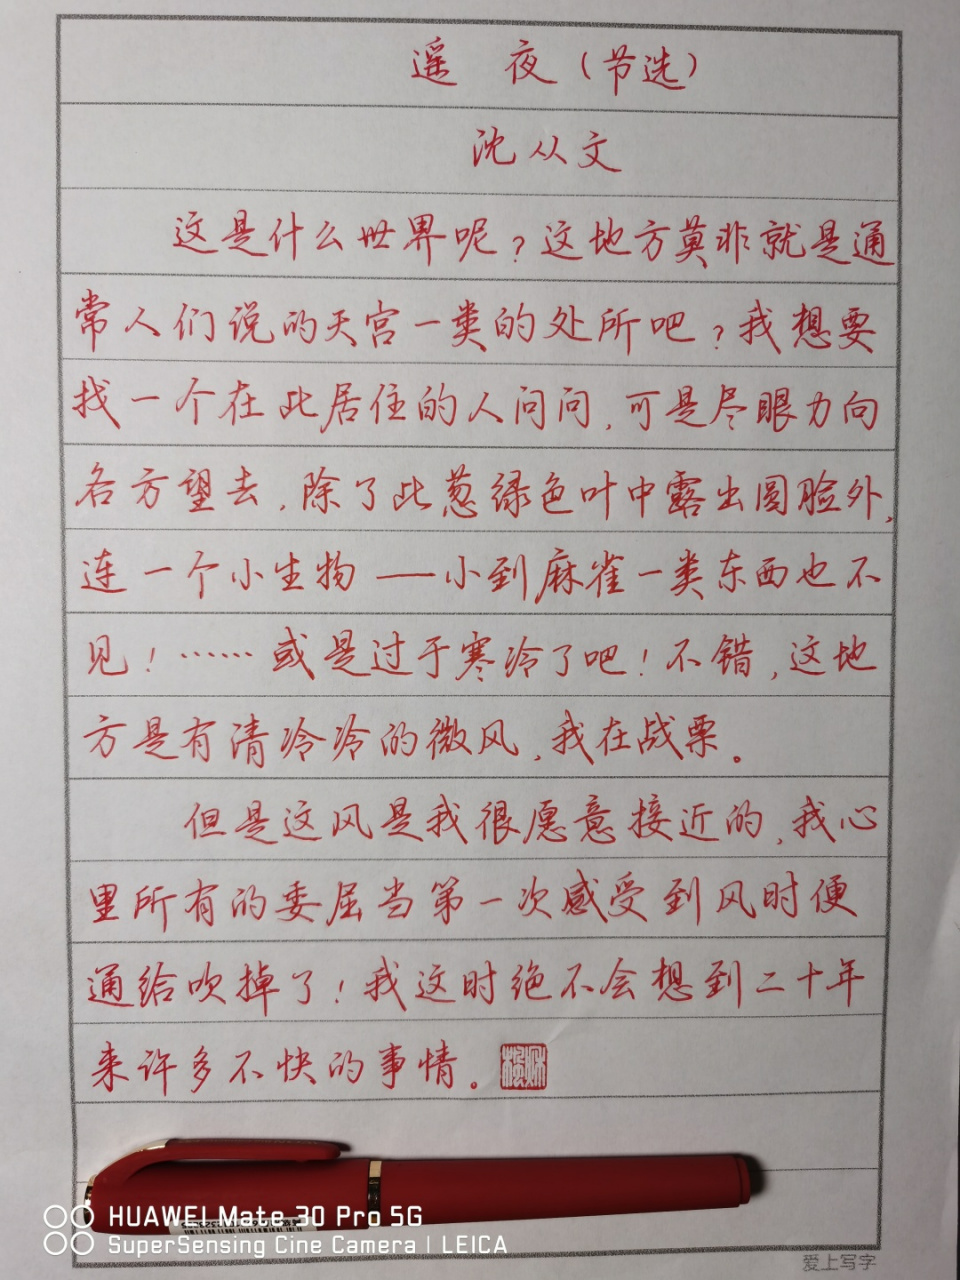 遥 夜（节选）
沈从文
这是什么世界呢？这地方莫非就是通
常人们说的天宫一类的处所吧？我想要
找一个在此居住的人问问，可是尽眼力向
各方望去，除了此葱绿色叶中露出圆脸外，
连一个小生物——小到麻雀一类东西也不
见！……或是过于寒冷了吧！不错，这地
方是有清冷冷的微风，我在战栗。
但是这风是我很愿意接近的，我心
里所有的委屈当第一次感受到风时便
通给吹掉了！我这时绝不会想到二十年
来许多不快的事情。
HUAWEI Mate 30 Pro 5G
SuperSensing Cine Camera | LEICA
爱上写字